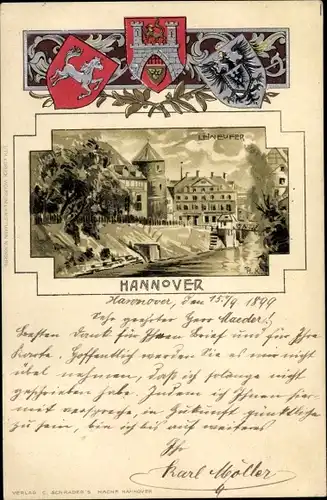 LEINEUFER
HANNOVER
Hannover, den 15/9 1899
Sehr geehrter Herr Maeder!
Besten Dank für Ihren Brief und für Ihre
Karte. Hoffentlich werden Sie es mir nicht
übel nehmen, daß ich solange nicht
geschrieben habe. Indem ich Ihnen hier-
mit verspreche, in Zukunft pünktlicher
zu sein, bin ich bis auf weiteres
Ihr
Karl Möller
VERLAG C. SCHRADER'S NACHF. HANNOVER